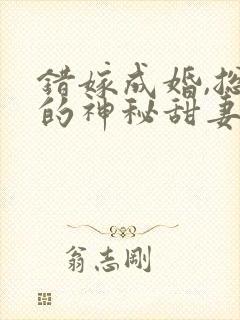 错嫁成婚,总
的神秘甜妻
翁志刚